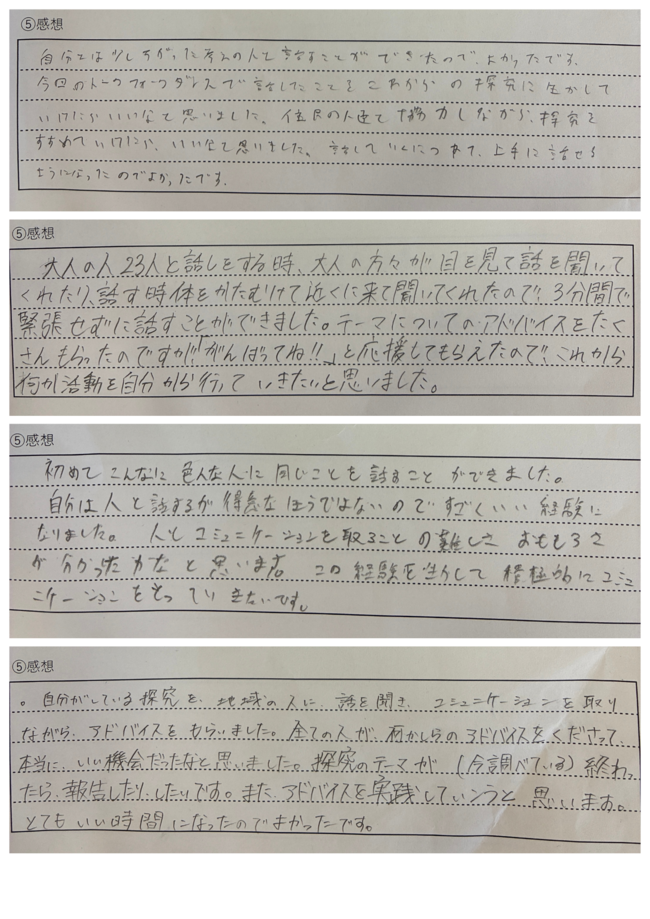 ⑤感想
自分とは少しちがった考えの人と話すことができたので、よかったです。
今回のトークフォークダンスで話したことをこれからの探究に生かして
いけたらいいなと思いました。住民の人達と協力しながら、探究を
すすめていけたら、いいなと思いました。話していくにつれて、上手に話せる
ようになったのでよかったです。
⑤感想
大人の人23人と話しをする時、大人の方々が目を見て話を聞いて
くれたり、話す時体をかたむけて近くに来て聞いてくれたので、3分間で
緊張せずに話すことができました。テーマについてのアドバイスをたく
さんもらったのですが「がんばってね!!」と応援してもらえたので、これから
何か活動を自分から行っていきたいと思いました。
⑤感想
初めてこんなに色んな人に同じことを話すことができました。
自分は人と話するが得意なほうではないのですごくいい経験に
なりました。人とコミュニケーションを取ることの難しさおもしろさ
が分かったかなと思います。この経験を生かして積極的にコミュ
ニケーションをとっていきたいです。
⑤感想
。自分がしている探究を、地域の人に、話を聞き、コミュニケーションを取り
ながら、アドバイスをもらいました。全ての人が、何かしらのアドバイスをくださって
本当に、いい機会だったなと思いました。探究のテーマが(今調べている)終わっ
たら、報告したりしたいです。また、アドバイスを実践していこうと思います。
とてもいい時間になったのでよかったです。